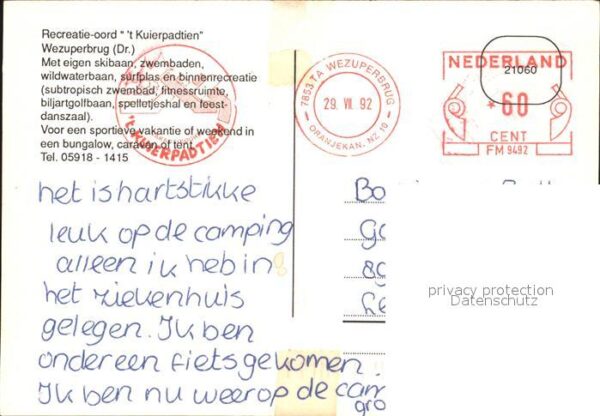 Recreatie-oord " 't Kuierpadtien"
Wezuperbrug (Dr.)
Met eigen skibaan, zwembaden,
wildwaterbaan, surfplas en binnenrecreatie
(subtropisch zwembad, fitnessruimte,
biljartgolfbaan, spelletjeshal en feest-
danszaal).
Voor een sportieve vakantie of weekend in
een bungalow, caravan of tent.
Tel. 05918 - 1415
't KUIERPADTIEN
7853TA WEZUPERBRUG
29. VII. 92
ORANJEKAN. NZ 10
NEDERLAND
21060
60
CENT
FM 9492
het is hartstikke
leuk op de camping
alleen ik heb in
het ziekenhuis
gelegen. Ik ben
onder een fiets gekomen.
Ik ben nu weer op de cam
gro
privacy protection
Datenschutz